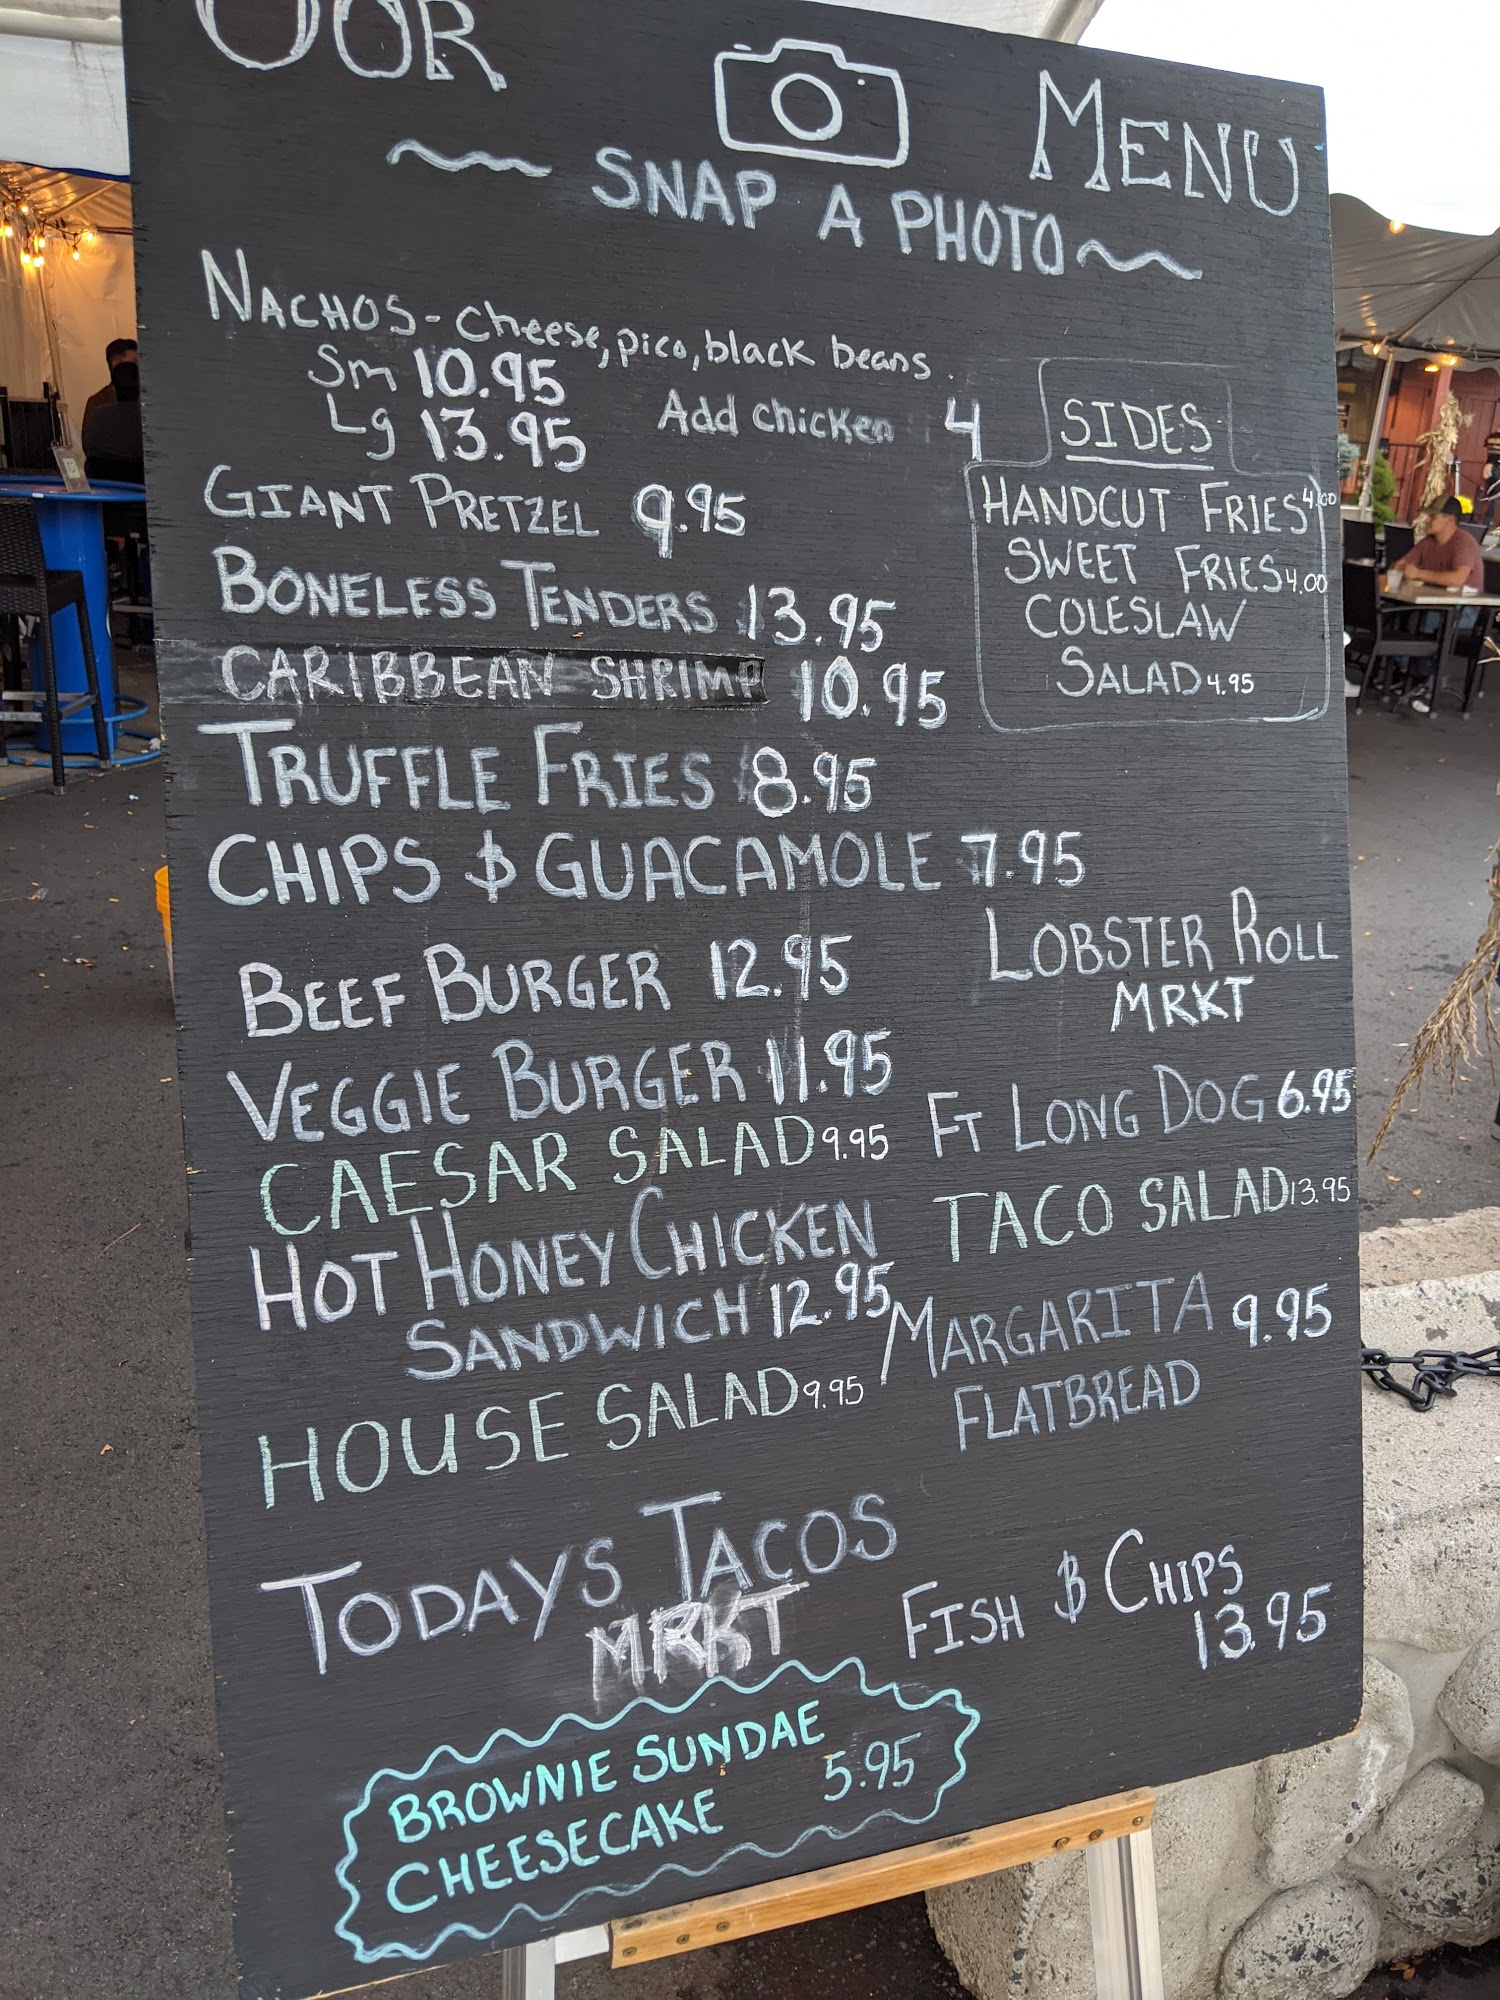 OUR MENU
~ SNAP A PHOTO ~
NACHOS - cheese, pico, black beans.
Sm 10.95
Lg 13.95 Add chicken 4
GIANT PRETZEL 9.95
BONELESS TENDERS 13.95
CARIBBEAN SHRIMP 10.95
TRUFFLE FRIES 8.95
CHIPS & GUACAMOLE 7.95
SIDES
HANDCUT FRIES 4.00
SWEET FRIES 4.00
COLESLAW
SALAD 4.95
BEEF BURGER 12.95
VEGGIE BURGER 11.95
CAESAR SALAD 9.95
HOT HONEY CHICKEN
SANDWICH 12.95
HOUSE SALAD 9.95
LOBSTER ROLL
MRKT
FT LONG DOG 6.95
TACO SALAD 13.95
MARGARITA 9.95
FLATBREAD
TODAYS TACOS
MRKT
FISH & CHIPS
13.95
BROWNIE SUNDAE
CHEESECAKE 5.95